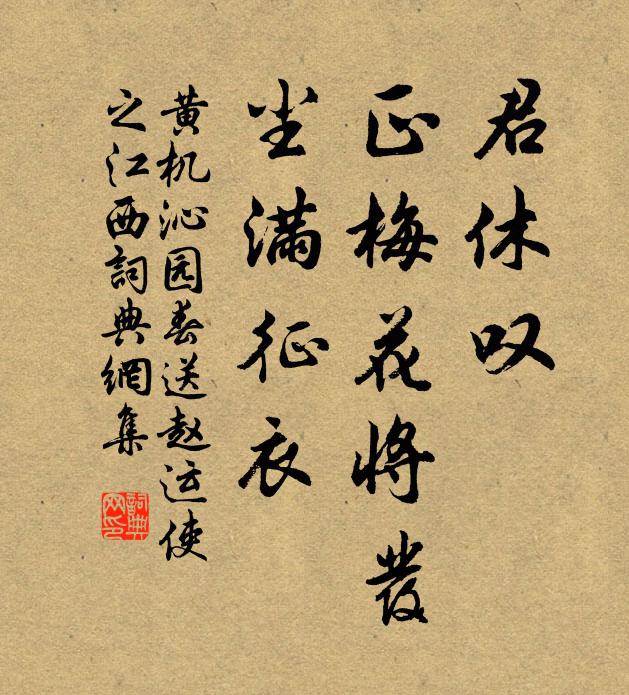 君休叹
正梅花将發
尘满征衣
黄机沁园春送赵运使
之江西詞典網集
詞典网印